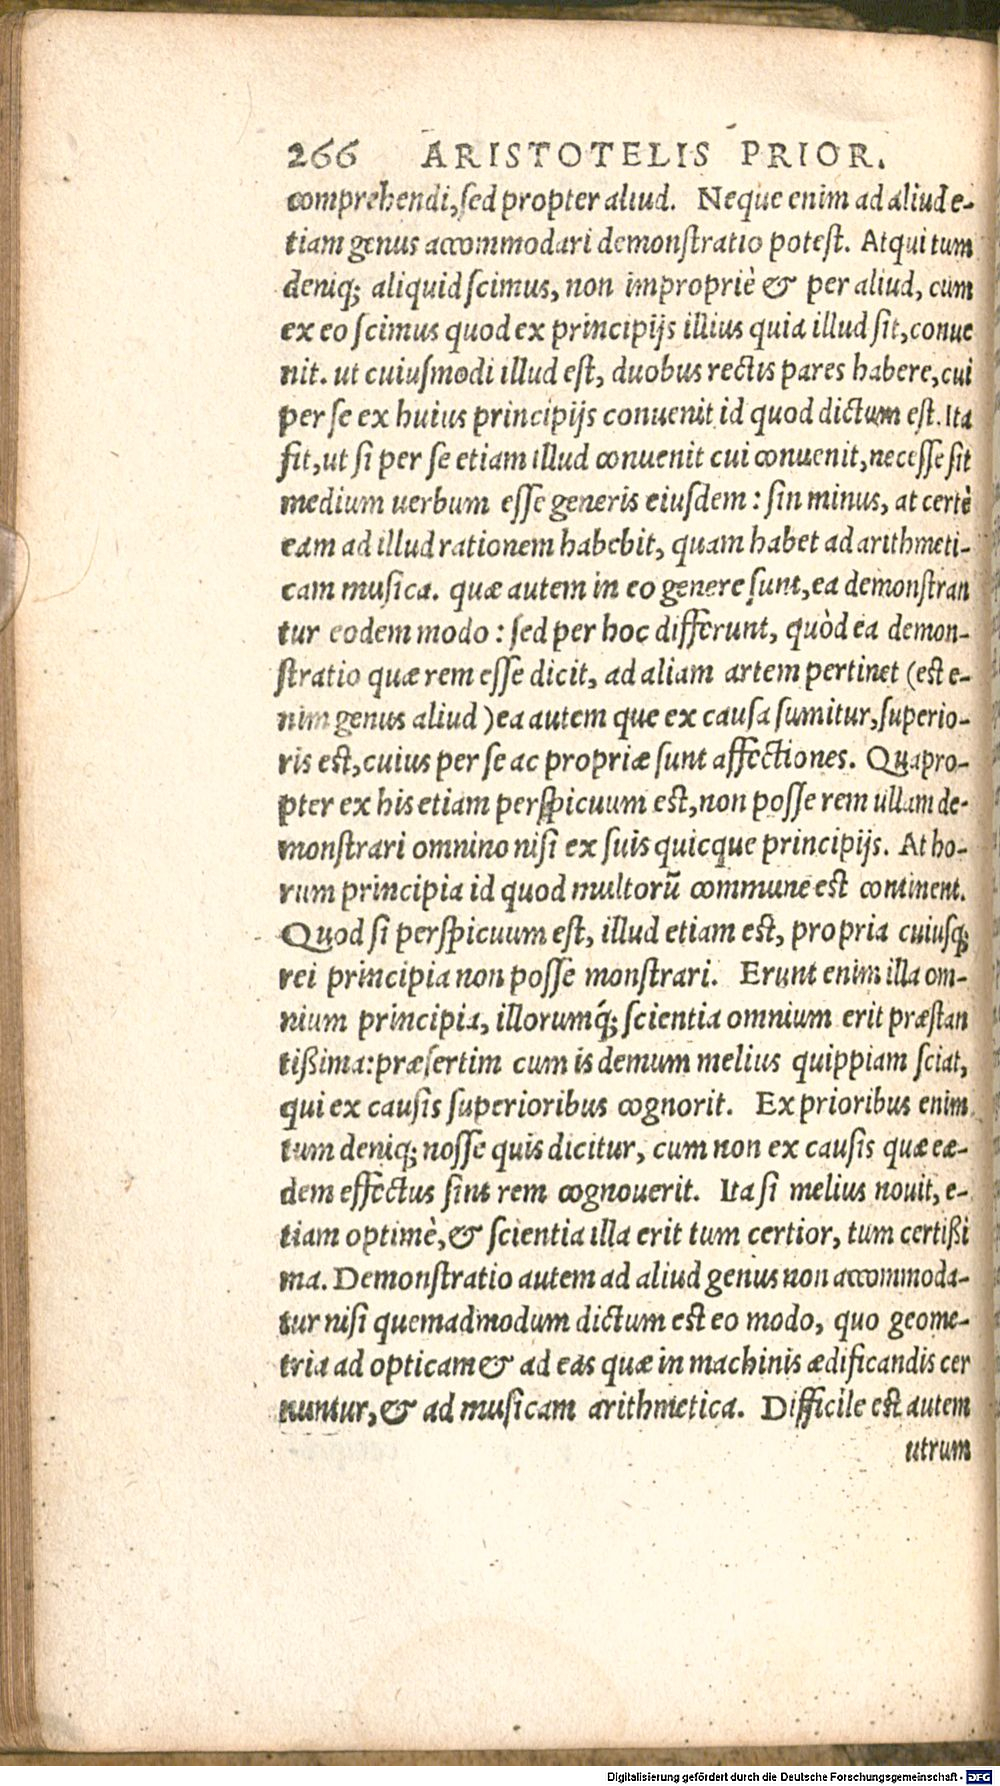 266 ARISTOTELIS PRIOR.
comprehendi, sed propter aliud. Neque enim ad aliud e-
tiam genus accommodari demonstratio potest. Atqui tum
deniq; aliquid scimus, non impropriè & per aliud, cum
ex eo scimus quod ex principijs illius quia illud sit, conue
nit. ut cuiusmodi illud est, duobus rectis pares habere, cui
per se ex huius principijs conuenit id quod dictum est. Ita
fit, ut si per se etiam illud conuenit cui conuenit, necesse sit
medium uerbum esse generis eiusdem: sin minus, at certè
eam ad illud rationem habebit, quam habet ad arithmeti-
cam musica. quæ autem in eo genere sunt, ea demonstran
tur eodem modo: sed per hoc differunt, quòd ea demon-
stratio quæ rem esse dicit, ad aliam artem pertinet (est e-
nim genus aliud) ea autem que ex causa sumitur, superio-
ris est, cuius per se ac propriæ sunt affectiones. Quapro-
pter ex his etiam perspicuum est, non posse rem ullam de-
monstrari omnino nisi ex suis quicque principijs. At ho-
rum principia id quod multorū commune est continent.
Quod si perspicuum est, illud etiam est, propria cuiusq;
rei principia non posse monstrari. Erunt enim illa om-
nium principia, illorumq́; scientia omnium erit præstan
tißima: præsertim cum is demum melius quippiam sciat,
qui ex causis superioribus cognorit. Ex prioribus enim
tum deniq; nosse quis dicitur, cum non ex causis quæ eæ-
dem effectus sint rem cognouerit. Ita si melius nouit, e-
tiam optimè, & scientia illa erit tum certior, tum certißi
ma. Demonstratio autem ad aliud genus non accommoda-
tur nisi quemadmodum dictum est eo modo, quo geome-
tria ad opticam & ad eas quæ in machinis ædificandis cer
nuntur, & ad musicam arithmetica. Difficile est autem
utrum
Digitalisierung gefördert durch die Deutsche Forschungsgemeinschaft - DFG